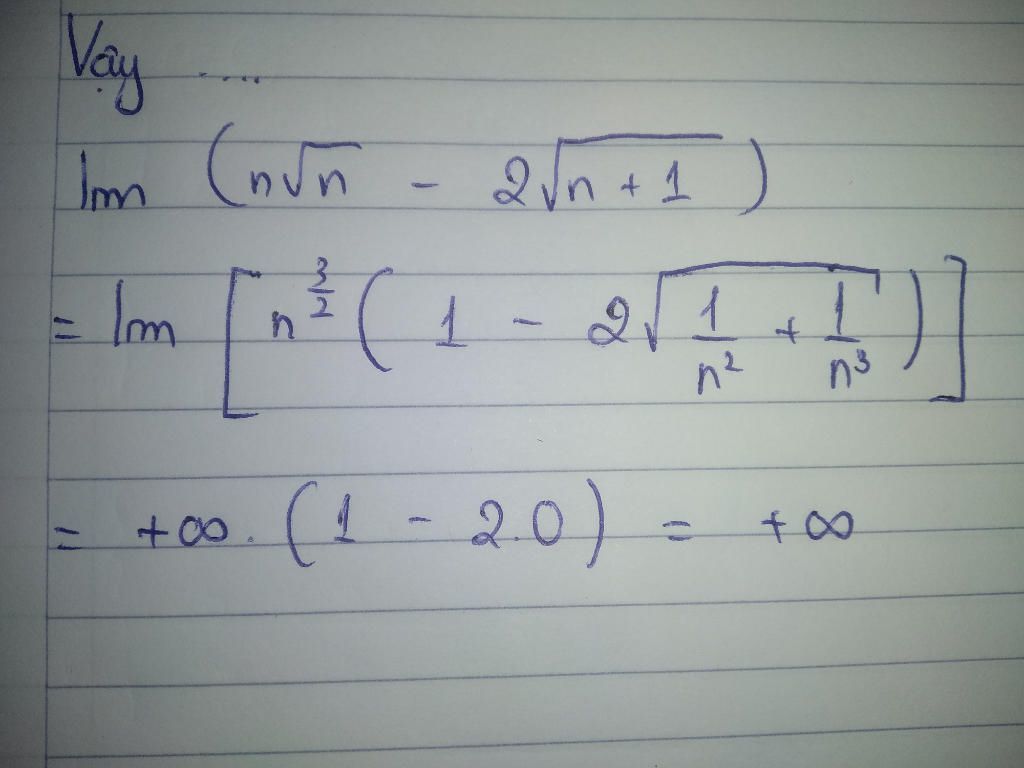 Vậy .....
lim (n√n - 2√(n + 1))
= lim [n^(3/2) (1 - 2√(1/n² + 1/n³))]
= +∞. (1 - 2.0) = +∞